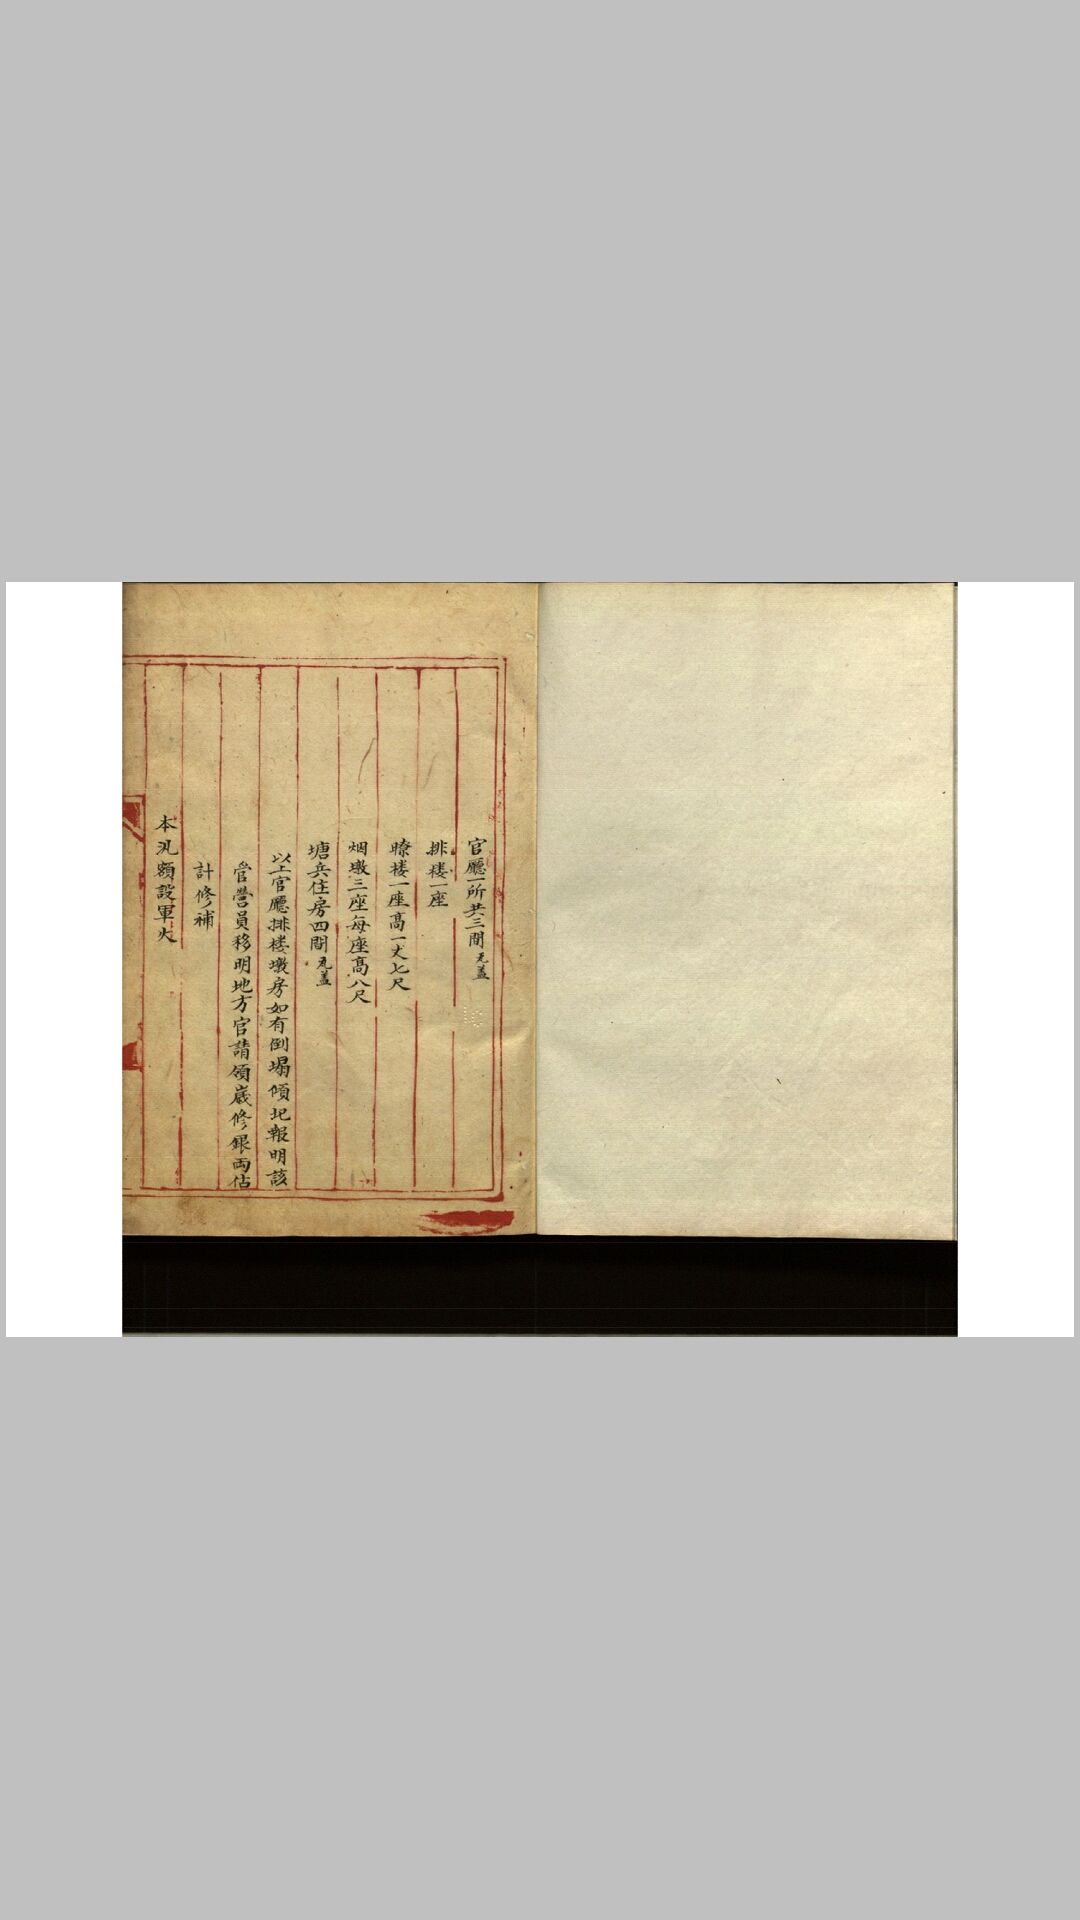 官廳一所共三間瓦蓋
排楼一座
瞭楼一座高一丈七尺
烟墩三座每座高八尺
塘兵住房四間瓦蓋
以上官廳排楼墩房如有倒塌傾圮報明該
管營員移明地方官請領歲修銀両估
計修補
本汛額設軍火